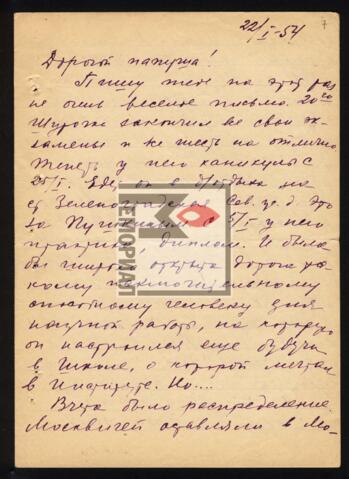 22/I-54
7
Дорогой папуша!
Пишу тебе на этот раз
не очень веселое письмо. 20го
Шурож закончил все свои эк-
замены и все шесть на отлично
Теперь у него каникулы с
25/I. Едет он в д/отдыха на
ст. Зеленоградская Сев. ж. д. Это
за Пушкиным. С 5/I у него
практика, диплом. И была
бы широко открыта дорога та-
кому исключительному
способному человеку для
научной работы, на которую
он настроился еще будучи
в школе, о которой мечтал
в Институте. Но....
Вчера было распределение
Москвичей оставляли в Мо-
МЕМОРИАЛ